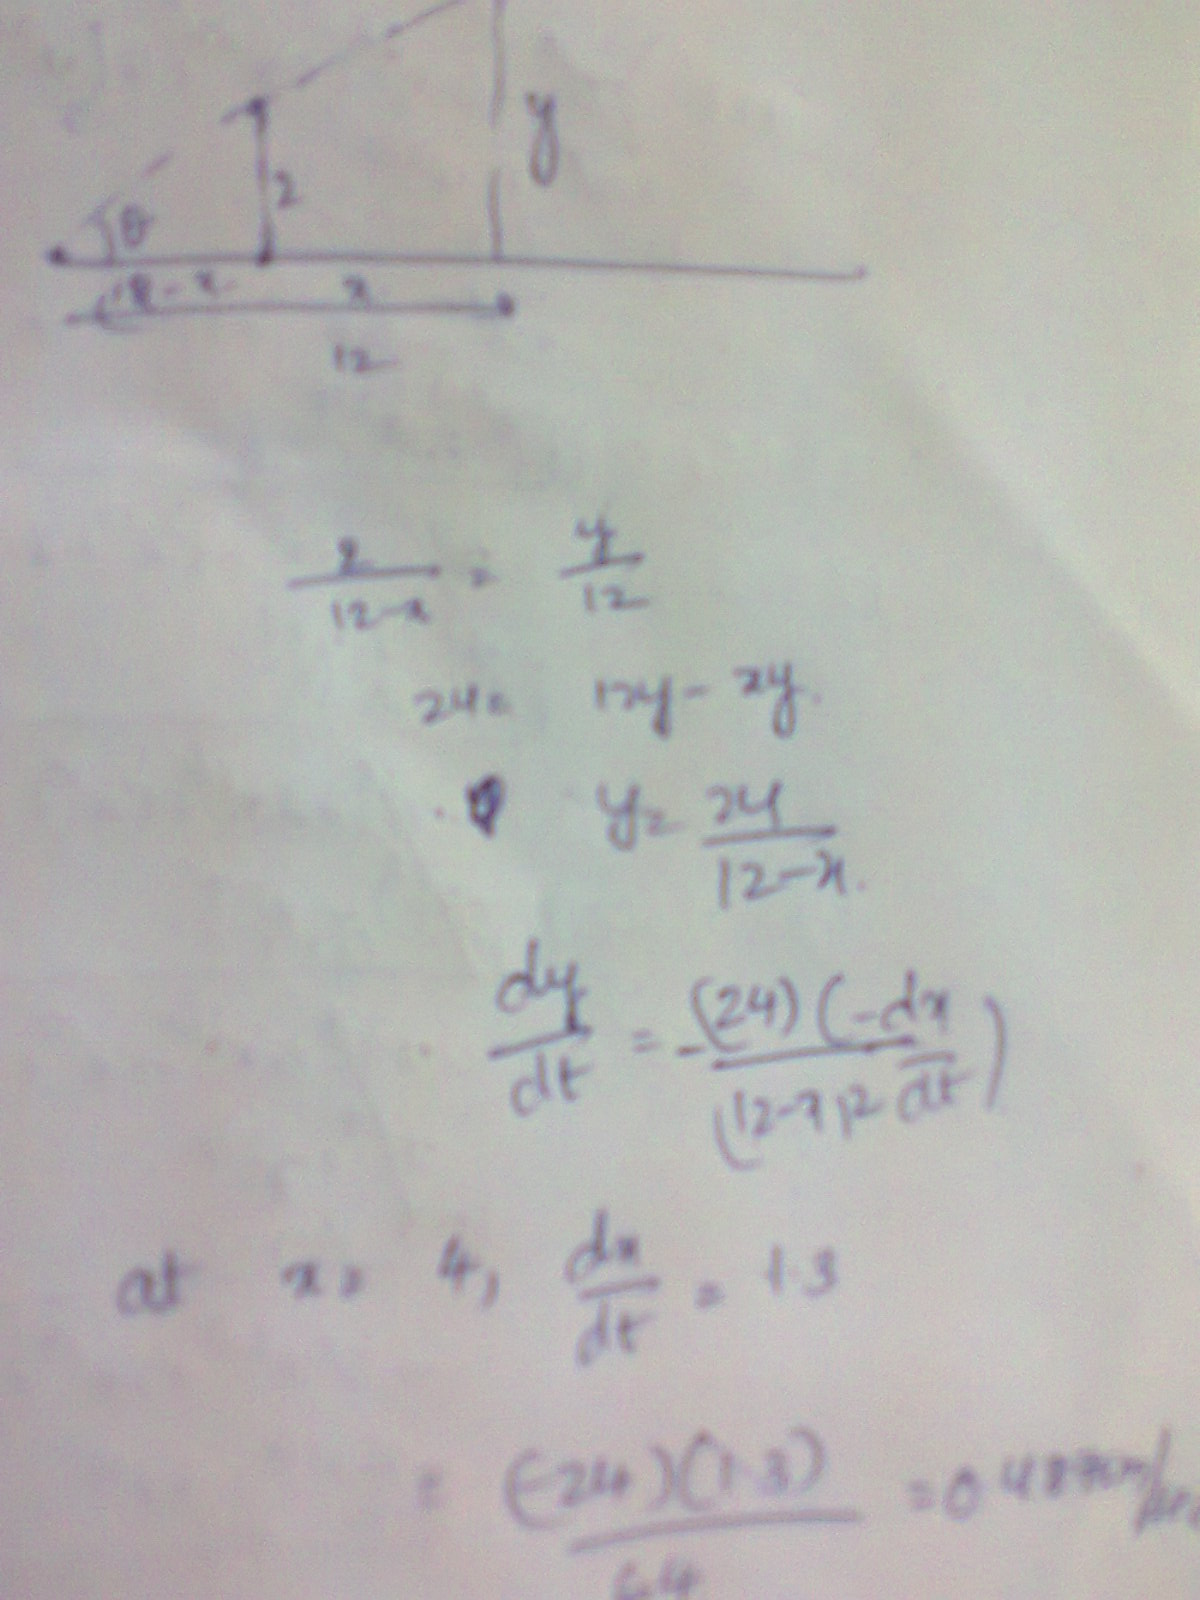 y
2
θ
12-x x
12
2/(12-x) = y/12
24 = 12y - xy.
y = 24/(12-x).
dy/dt = -(24)(-dx/dt)/(12-x)2
at x = 4, dx/dt = 1.3
= (-24)(1.3)/64 = 0.487